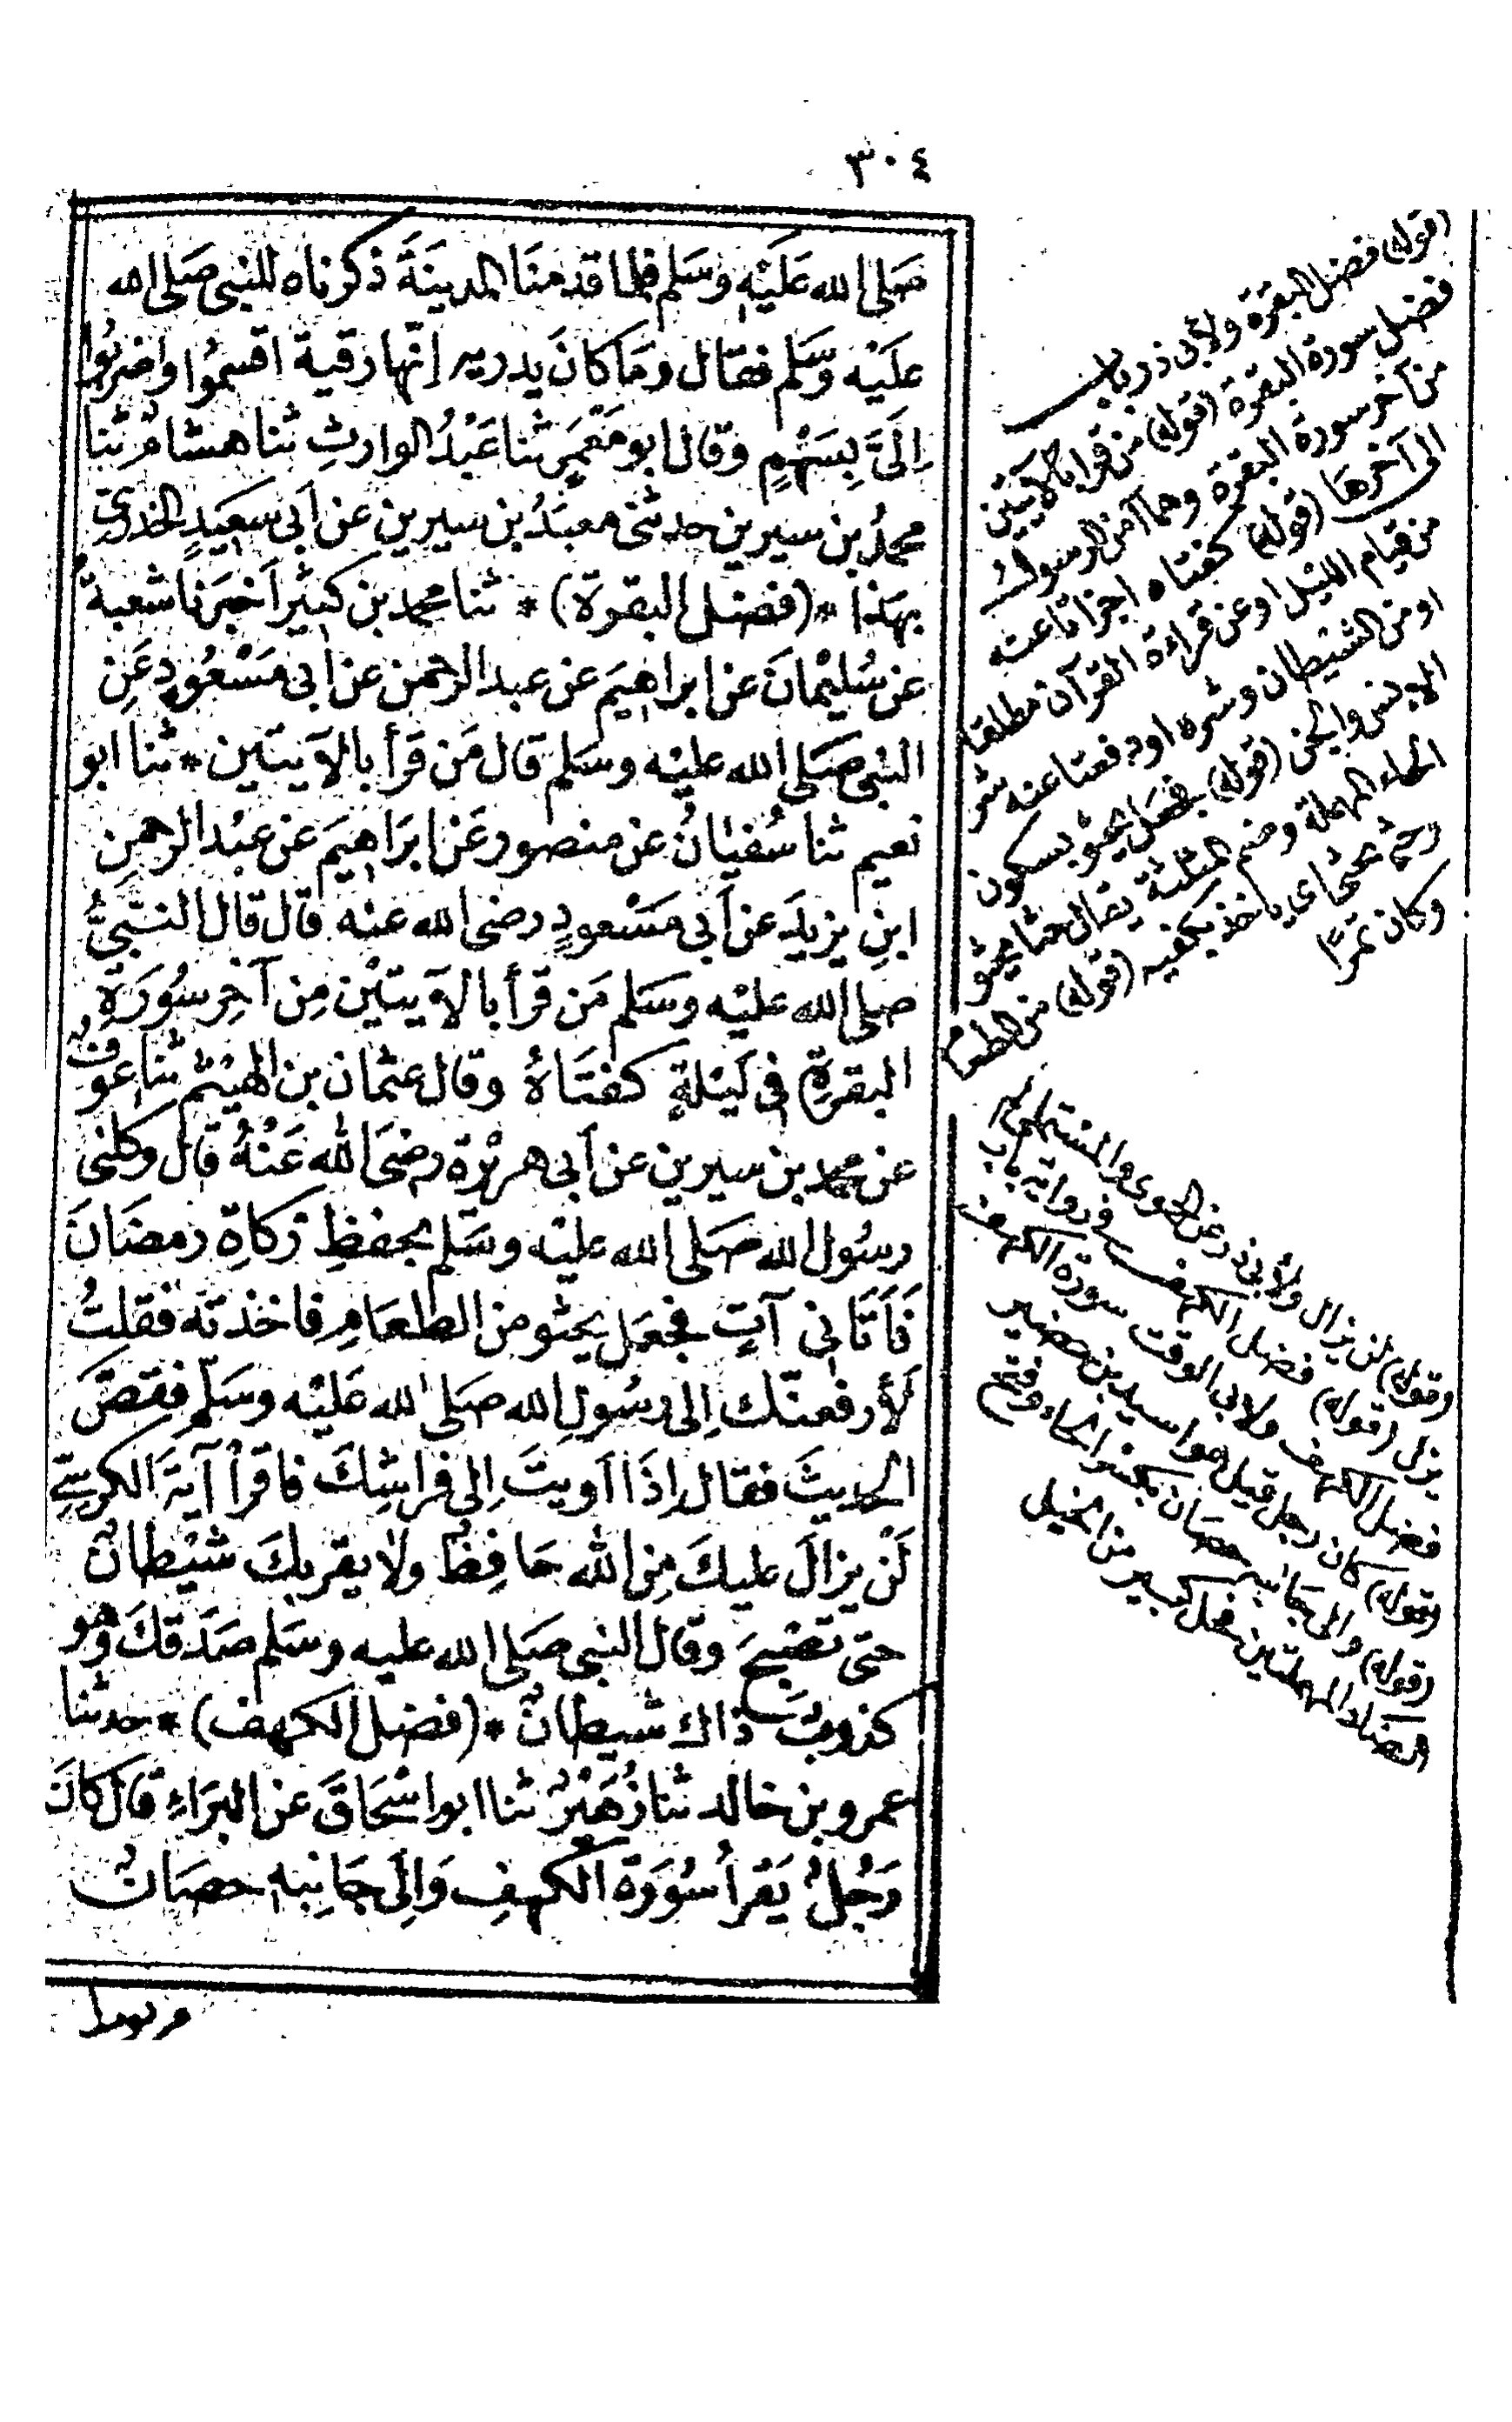 ٣٠٤
صَلى الله عَلَيْهِ وسَلم فلما قدمنَا المدينَةَ ذكرناه للنبى صَلى الله
علَيْه وسَلم فقال وَمَا كانَ يدريه انّها رقية اقسمُوا واضربُوا
اِلَىَّ بِسَهْمٍ وقال ابو مَعْمَرٍ ثنا عَبْدُ الوارثِ ثنا هشامٌ ثنا
محمدُ بن سيرين حدثنى معبَدُ بن سيرين عن اَبى سَعيدٍ الخدرىّ
بهَذا * (فضل البقرة) * ثنا محمد بن كثير اَخبَرنا شعبةُ
عن سُليْمانَ عن ابراهيَم عن عبد الرحمن عن ابى مَسْعُودٍ عَنِ
النبى صَلى الله عليْه وسَلم قال مَن قرأ بالآيتَين * ثنا ابو
نعيم ثنا سُفيانُ عن منصور عَن ابرَاهِيَم عن عبْد الرحمنِ
ابنِ يزيدَ عن اَبى مَسْعودٍ رضى الله عنه قال قال النَّبىُّ
صلى الله عليْه وسَلم مَن قرأ بالآيتيْن مِن آخِر سُورَةِ
البقرةِ فى لَيْلةٍ كفتَاهُ وقال عثمان بن الهيْثم ثنا عوفٌ
عن محمد بن سيرين عن اَبى هريْرة رضىَ الله عَنْهُ قال وكلنى
رسُول الله صَلى الله عليْه وسَلم بحفظِ زكاةِ رمضَانَ
فَاَتَانِى آتٍ فجعَل يحثو من الطعَامِ فاخذته فقلتُ
لأرفعنّك اِلى رسُولِ الله صَلى الله عَليْه وسَلم فقصَّ
الحديثَ فقال اِذَا اَويتَ اِلى فراشِكَ فاقرأ آيَةَ الكرسىّ
لَنْ يزالَ عليكَ مِن الله حَافِظٌ ولا يقربكَ شيْطانٌ
حتى تصْبحَ وقال النبى صَلى الله عليه وسَلم صَدَقكَ وَهو
كذوبٌ ذاك شيطانٌ * (فضل الكهف) * حدثنا
عمرو بن خالد ثنا زُهَيْرٌ ثنا ابو اسْحَاقَ عن البَرَاءِ قال كانَ
رَجُلٌ يَقرأ سُورَة الكهفِ وَاِلَى جَانِبِه حصَانٌ
مربوط
(قوله) فضل البقرة ولأبى ذر باب
فضل سورة البقرة (قوله) من قرا بالآيتين
من آخر سورة البقرة وهما آمن الرسول
الى آخرها (قوله) كفتاه اجزأتا عنه
من قيام الليل او عن قراءة القرآن مطلقا
او من الشيطان وشره او دفعتا عنه شر
الانس والجن (قوله) فجعل يحثو بسكون
الحاء المهملة وضم المثلثة يقال حثا يحثو
وحثى يحثى اى ياخذ بكفيه (قوله) من الطعام
وكان تمرًا
(قوله) لن يزال ولأبى ذر عن الحموى والمستملى لم
يزل (قوله) فضل الكهف فى رواية باب
فضل الكهف ولابى الوقت سورة الكهف
(قوله) كان رجل قيل هو اسيد بن حضير
(قوله) والى جانبه حصان بكسر الحاء وفتح
الصاد المهملتين فحل كبير من الخيل